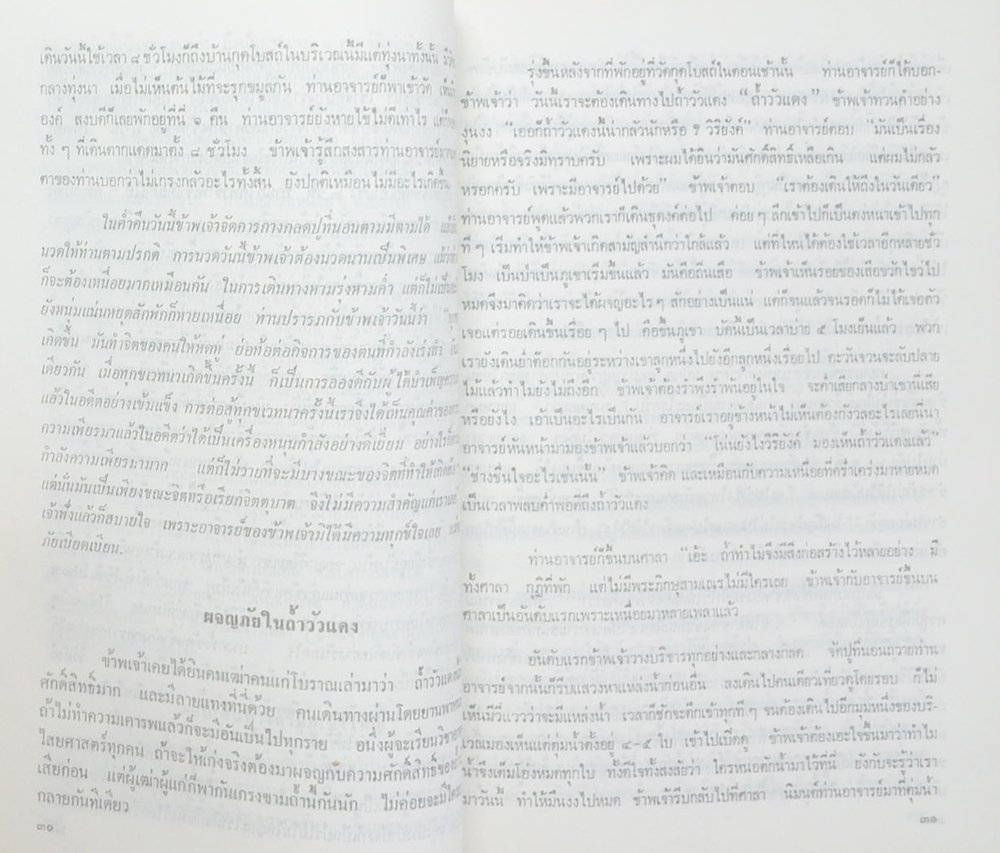 เดินวันนี้ใช้เวลา ๘ ชั่วโมงก็ถึงบ้านกุดโบสถ์ในบริเวณนี้มีแต่ทุ่งนาทั้งนั้น มีวัด
กลางทุ่งนา เมื่อไม่เห็นต้นไม้ที่จะรุกขมูลกัน ท่านอาจารย์ก็พาเข้าวัด
องค์ สงบดีก็เลยพักอยู่ที่นี่ ๑ คืน ท่านอาจารย์ยังหายใช้ไม่ดีเท่าไร
ทั้ง ๆ ที่เดินตากแดดมาตั้ง ๘ ชั่วโมง ข้าพเจ้ารู้สึกสงสารท่านอาจารย์มาก
ตาของท่านบอกว่าไม่เกรงกลัวอะไรทั้งสิ้น ยังปกติเหมือนไม่มีอะไรเกิดขึ้น
ในค่ำคืนวันนี้ข้าพเจ้าจัดการกางกลดปูที่นอนตามมีตามได้
นวดให้ท่านตามปรกติ การนวดวันนี้ข้าพเจ้าต้องนวดนานเป็นพิเศษ
ก็จะต้องเหนื่อยมากเหมือนกัน ในการเดินทางหามรุ่งหามค่ำ
ยังหนุ่มแน่นหยุดสักพักก็หายเหนื่อย ท่านปรารภกับข้าพเจ้าวันนี้ว่า
เกิดขึ้น มันทำจิตของคนให้หดหู่ ย่อท้อต่อกิจการของตนที่กำลังเร่งทำ
เดียวกัน เมื่อทุกขเวทนาเกิดขึ้นครั้งนี้ ก็เป็นการลองดีกับผู้ได้บำเพ็ญ
แล้วในอดีตอย่างเข้มแข็ง การต่อสู้ทุกขเวทนาครั้งนี้เราจึงได้เห็นคุณค่าของ
ความเพียรมาแล้วในอดีตว่าได้เป็นเครื่องหนุนกำลังอย่างดีเยี่ยม
กำลังความเพียรมามาก แต่ก็ไม่วายที่จะมีบางขณะของจิตที่ทำให้คิด
แต่นั่นมันเป็นเพียงขณะจิตหรือเรียกจิตตุบาต จึงไม่มีความสำคัญแก่เรา
เจ้าฟังแล้วก็สบายใจ เพราะอาจารย์ของข้าพเจ้ามิได้มีความทุกข์ใจเลย
ภัยเบียดเบียน.
ผจญภัยในถ้ำวัวแดง
ข้าพเจ้าเคยได้ยินคนเฒ่าคนแก่โบราณเล่ามาว่า ถ้ำวัวแดง
ศักดิ์สิทธิ์มาก และมีลายแทงที่นี่ด้วย คนเดินทางผ่านโดยยานพาหนะ
ถ้าไม่ทำความเคารพแล้วก็จะมีอันเป็นไปทุกราย อนึ่งผู้จะเรียนวิชา
ไสยศาสตร์ทุกคน ถ้าจะให้เก่งจริงต้องมาผจญกับความศักดิ์สิทธิ์ของ
เสียก่อน แต่ผู้เฒ่าผู้แก่ก็พากันเกรงขามถ้ำนี้กันนัก ไม่ค่อยจะมีใคร
กลายกันทีเดียว
๓๐
รุ่งขึ้นหลังจากที่พักอยู่ที่วัดกุดโบสถ์ในตอนเช้านั้น ท่านอาจารย์ก็ได้บอก-
ข้าพเจ้าว่า วันนี้เราจะต้องเดินทางไปถ้ำวัวแดง “ถ้ำวัวแดง” ข้าพเจ้าทวนคำอย่าง
งุนงง “เออก็ถ้ำวัวแดงนี้น่ากลัวนักหรือ ? วิริยังค์” ท่านอาจารย์ตอบ “มันเป็นเรื่อง
นิยายหรือจริงมิทราบครับ เพราะผมได้ยินว่ามันศักดิ์สิทธิ์เหลือเกิน แต่ผมไม่กลัว
หรอกครับ เพราะมีอาจารย์ไปด้วย” ข้าพเจ้าตอบ “เราต้องเดินให้ถึงในวันเดียว”
ท่านอาจารย์พูดแล้วพวกเราก็เดินธุดงค์ต่อไป ค่อย ๆ ลึกเข้าไปก็เป็นดงหนาเข้าไปทุก
ที ๆ เริ่มทำให้ข้าพเจ้าเกิดสามัญสำนึกว่าใกล้แล้ว แต่ที่ไหนได้ต้องใช้เวลาอีกหลายชั่ว
โมง เป็นป่าเป็นภูเขาเริ่มขึ้นแล้ว มันคือถิ่นเสือ ข้าพเจ้าเห็นรอยของเสือขวักไขว่ไป
หมดจึงมาคิดว่าเราจะได้ผจญอะไร ๆ สักอย่างเป็นแน่ แต่ก็จนแล้วจนรอดก็ไม่ได้เจอตัว
เจอแต่รอยเดินขึ้นเรื่อย ๆ ไป คือขึ้นภูเขา บัดนี้เป็นเวลาบ่าย ๕ โมงเย็นแล้ว พวก
เรายังเดินย่ำต๊อกกันอยู่ระหว่างเขาลูกหนึ่งไปยังอีกลูกหนึ่งเรื่อยไป ตะวันจวนจะลับปลาย
ไม้แล้วทำไมยังไม่ถึงอีก ข้าพเจ้าต้องว้าพุงรำพันอยู่ในใจ จะค่ำเสียกลางป่าเขานี่เสีย
หรือยังไง เอ้าเป็นอะไรเป็นกัน อาจารย์เราอยู่ข้างหน้าไม่เห็นต้องกังวลอะไรเลยนี่นา
อาจารย์หันหน้ามามองข้าพเจ้าแล้วบอกว่า “โน่นยังไงวิริยังค์ มองเห็นถ้ำวัวแดงแล้ว”
“ช่างชื่นใจอะไรเช่นนั้น” ข้าพเจ้าคิด และเหมือนกับความเหนื่อยที่คร่ำเคร่งมาหายหมด
เป็นเวลาพลบค่ำพอดีถึงถ้ำวัวแดง
ท่านอาจารย์ก็ขึ้นบนศาลา “เอ๊ะ ถ้ำทำไมจึงมีสิ่งก่อสร้างไว้หลายอย่าง มี
ทั้งศาลา กุฏิที่พัก แต่ไม่มีพระภิกษุสามเณรไม่มีใครเลย ข้าพเจ้ากับอาจารย์ขึ้นบน
ศาลาเป็นอันดับแรกเพราะเหนื่อยมาหลายเพลาแล้ว
อันดับแรกข้าพเจ้าวางบริขารทุกอย่างและกลางกลด จัดปูที่นอนถวายท่าน
อาจารย์จากนั้นก็รีบแสวงหาแหล่งน้ำก่อนอื่น ลงเดินไปคนเดียวเที่ยวดูโดยรอบ ก็ไม่
เห็นมีวี่แววว่าจะมีแหล่งน้ำ เวลาก็ชักจะดึกเข้าทุกที ๆ จนต้องเดินไปอีกมุมหนึ่งของบริ-
เวณมองเห็นแต่ตุ่มน้ำตั้งอยู่ ๔-๕ ใบ เข้าไปเปิดดู ข้าพเจ้าต้องเอะใจขึ้นมาว่าทำไม
น้ำจึงเต็มโอ่งหมดทุกใบ ทั้งดีใจทั้งสงสัยว่า ใครหนอตักน้ำมาไว้ที่นี่ ยังกับจะรู้ว่าเรา
มาวันนี้ ทำให้มึนงงไปหมด ข้าพเจ้ารีบกลับไปที่ศาลา นิมนต์ท่านอาจารย์มาที่ตุ่มน้ำ
๓๑